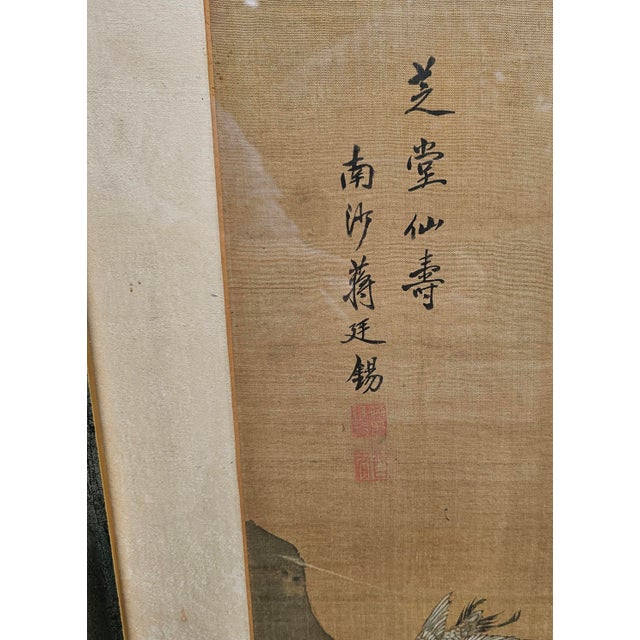 芝堂仙壽
南沙蔣廷錫